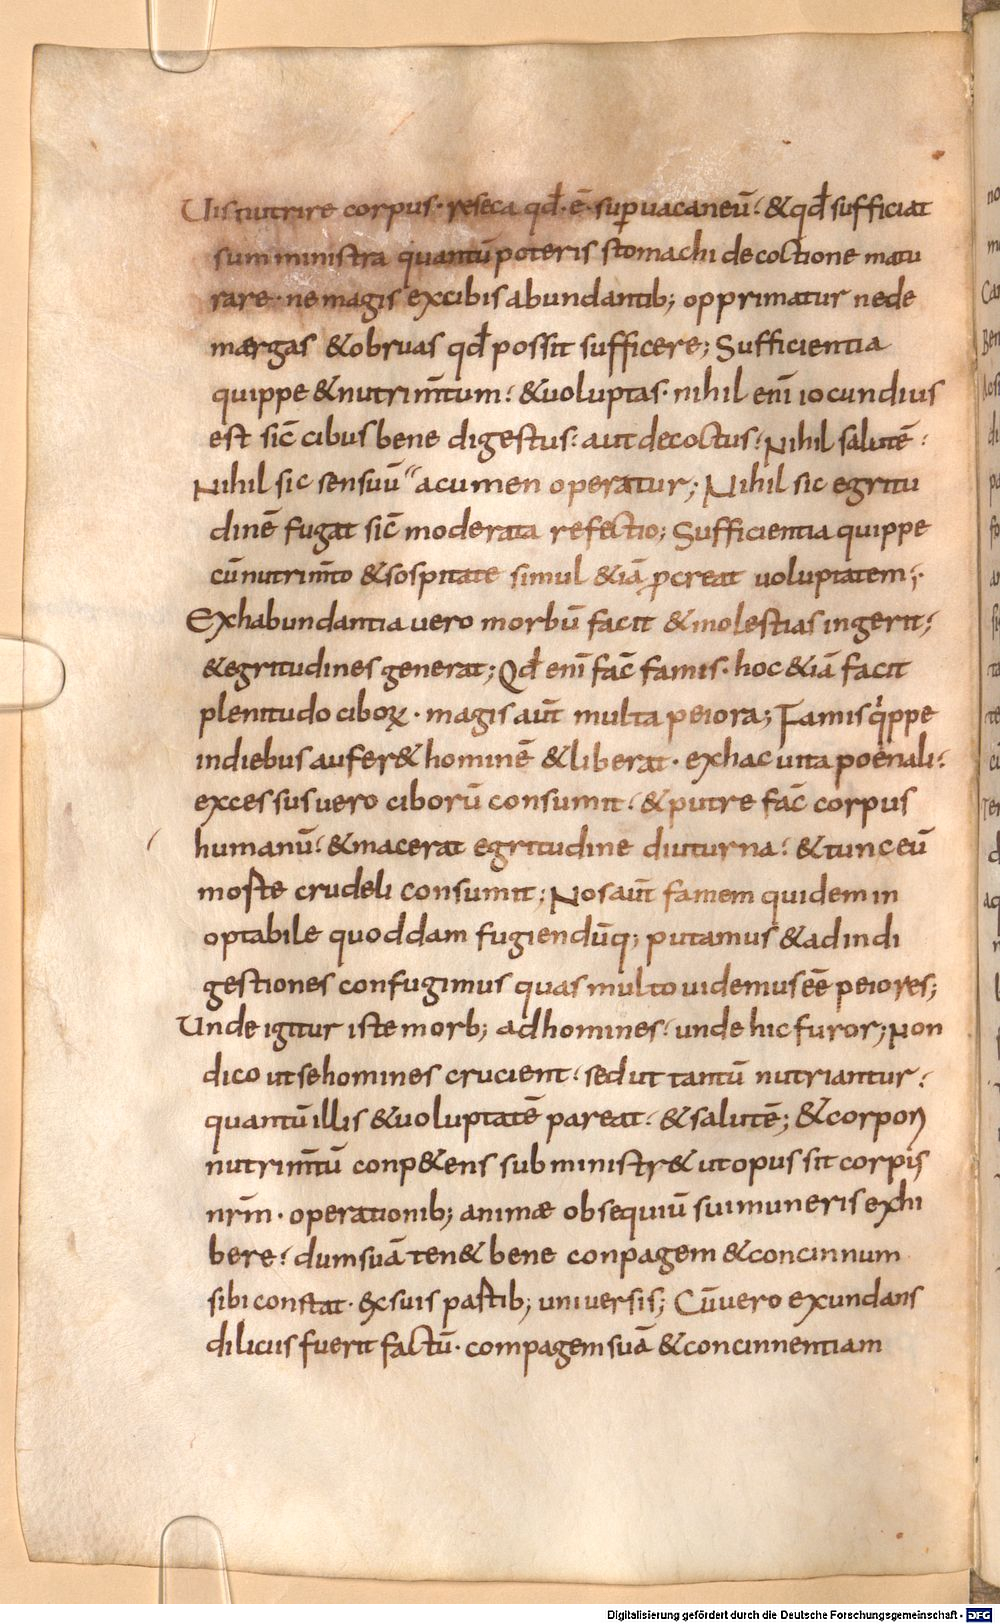 Uis nutrire corpus· reseca qđ·ē·superuacaneū· &qđ sufficiat
sumministra quantū poteris stomachi decoctione matu
rare· ne magis ex cibis abundantib; opprimatur ne de
mergas &obruas qđ possit sufficere; Sufficientia
quippe &nutrim̄tum· &uoluptas· nihil enī iocundius
est sic̄ cibus bene digestus: aut decoctus: Nihil salutē:
Nihil sic sensuū acumen operatur; Nihil sic egritu
dinē fugat sic̄ moderata refectio; Sufficientia quippe
cū nutrim̄to &sospitate simul &iā ꝓcreat uoluptatem;·
Exhabundantia uero morbū facit &molestias ingerit;
&egritudines generat; Qđ enī fac̄ famis· hoc &iā facit
plenitudo ciboꝝ· magis aūt multa peiora; Famis qippe
in diebus aufer& hominē &liberat· ex hac uita poenali:
excessus uero ciborū consumit: &putre fac̄ corpus
humanū: &macerat egritudine diuturna: &tunc eū
morte crudeli consumit; Nos aūt famem quidem in
optabile quoddam fugiendūq; putamus &ad indi
gestiones confugimus quas multo uidemus eē peiores;
Unde igitur iste morb; ad homines: unde hic furor; Non
dico ut se homines crucient: sed ut tantū nutriantur:
quantū illis &uoluptatē pareat: &salutē; &corpori
nutrim̄tū conp&ens subministr& ut opus sit corpis
nr̄m· operationib; animæ obsequiū sui muneris exhi
bere: dum suā ten& bene conpagem &concinnum
sibi constat· excsuis partib; uniuersis; Cū uero exundans
diliciis fuerit factū· compagem suā &concinnentiam
Digitalisierung gefördert durch die Deutsche Forschungsgemeinschaft - DFG